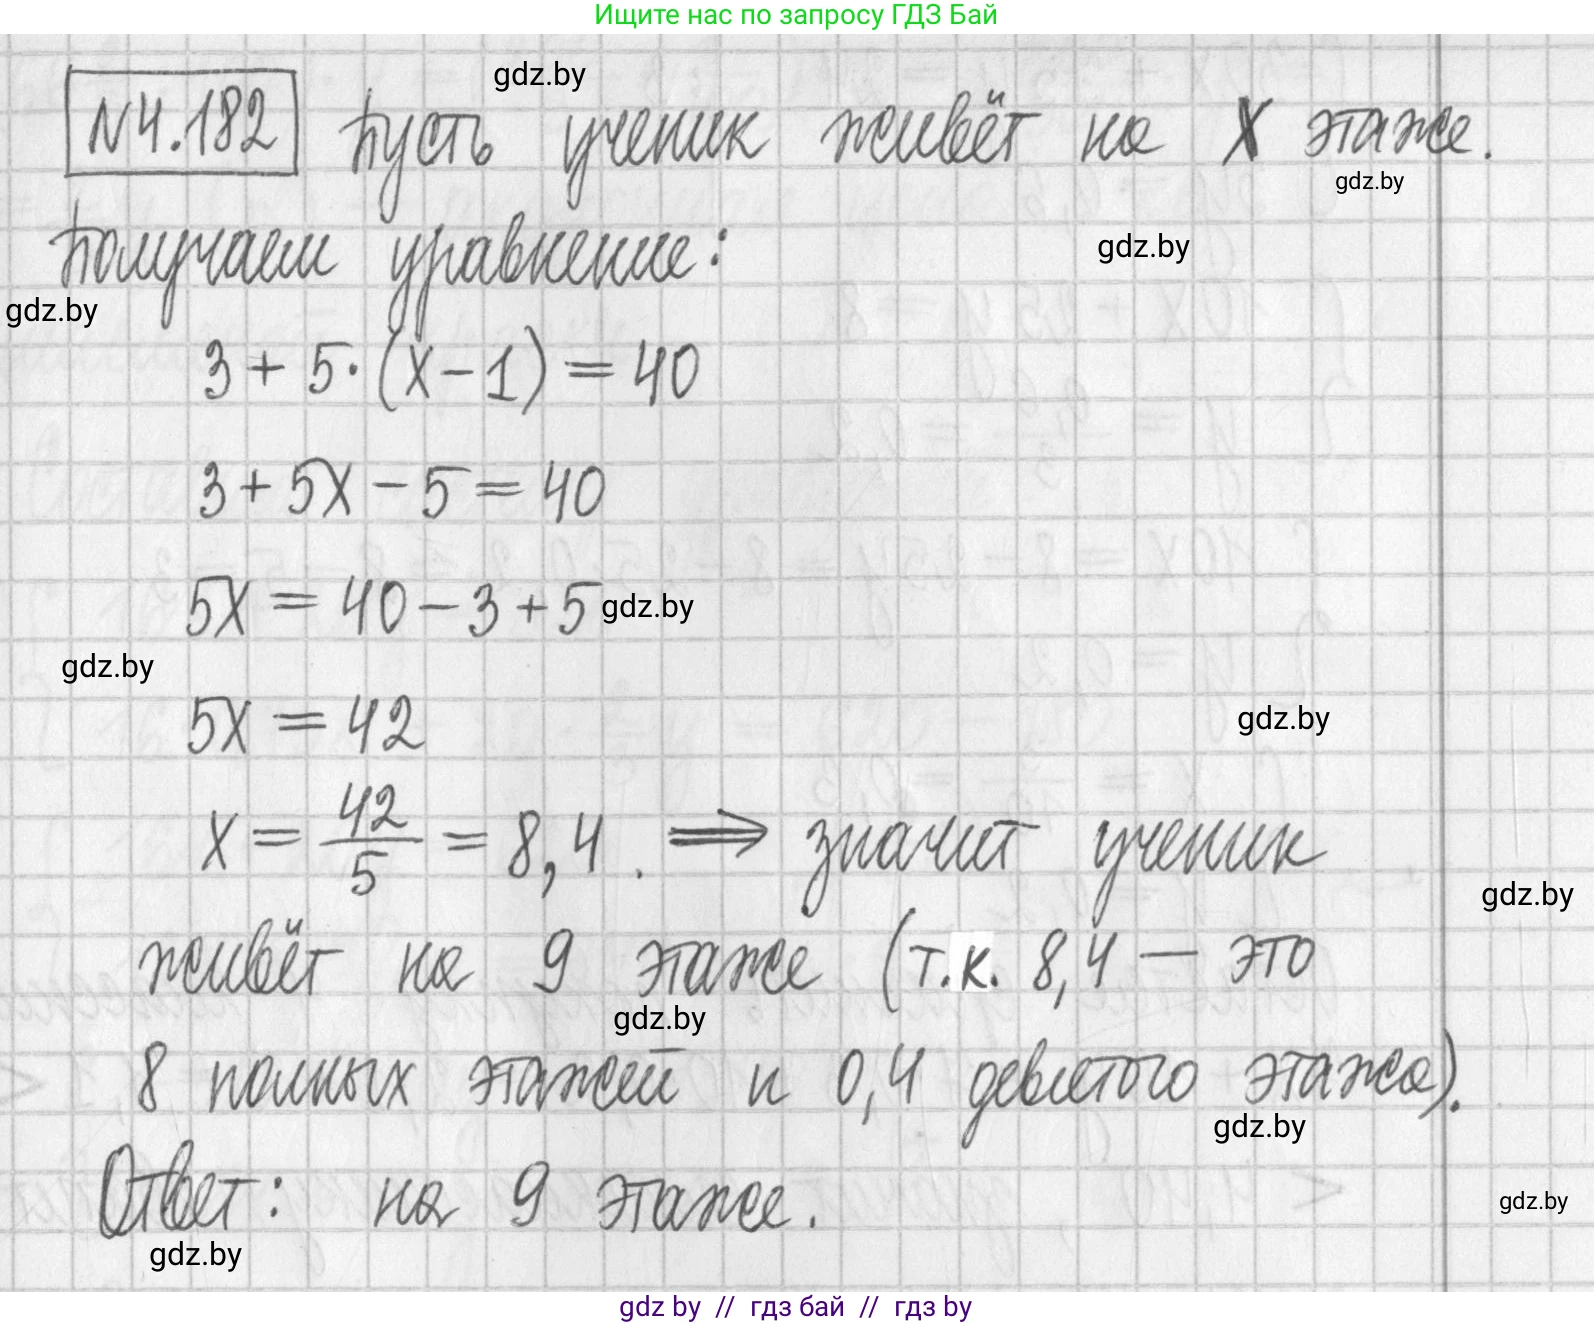 Ищите нас по запросу ГДЗ Бай
gdz.by
№4.182 Пусть ученик живёт на X этаже.
gdz.by
Получаем уравнение:
gdz.by
gdz.by
3 + 5·(x − 1) = 40
3 + 5x − 5 = 40
5x = 40 − 3 + 5
gdz.by
gdz.by
5x = 42
gdz.by
x = 42/5 = 8,4. ⟹ значит ученик
gdz.by
живёт на 9 этаже (т.к. 8,4 — это
gdz.by
8 полных этажей и 0,4 девятого этажа).
gdz.by
Ответ: на 9 этаже.
gdz.by
gdz.by
gdz by // гдз бай // гдз by